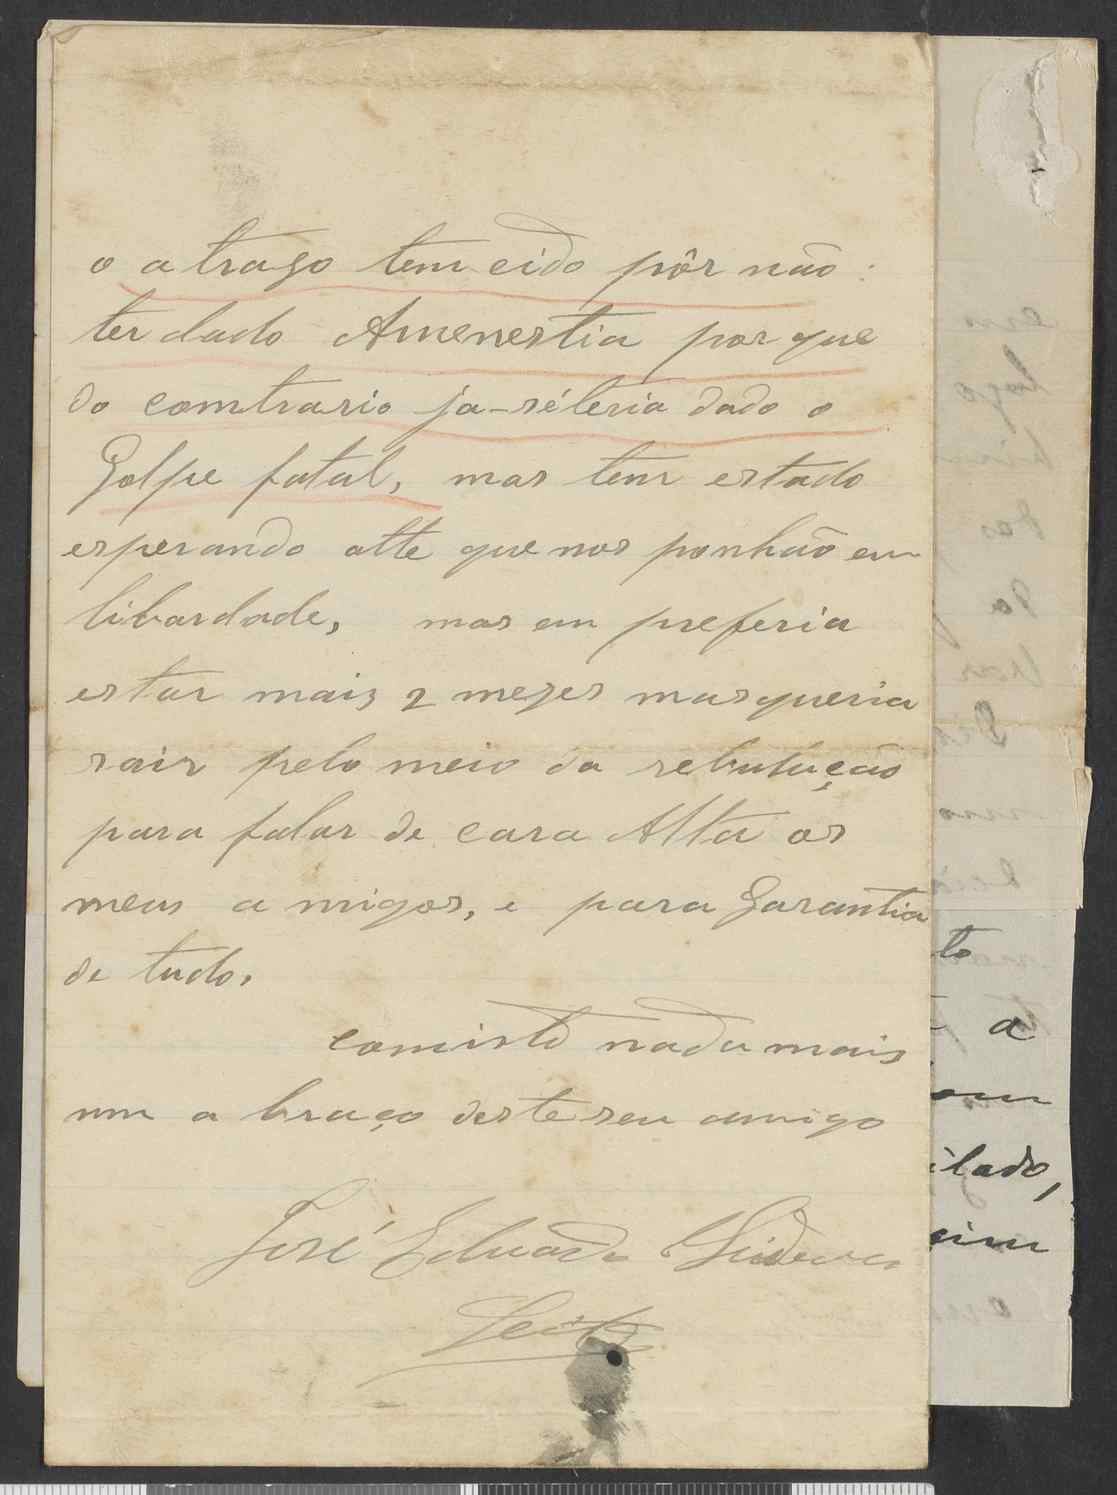 o atrazo tem cido pôr não
ter dado Amenestia por que
do comtrario ja-séteria dado o
Golpe fatal, mas tem estado
esperando atte que nos ponhão em
libardade, mas eu preferia
estar mais 2 mezes mas queria
sair pelo meio da rebulução
para falar de cara Alta os
meus a migos, e para Garantia
de tudo.
comisto nada mais
um a braço deste seu amigo
José Eduardo
Leite
to
a
ilado,